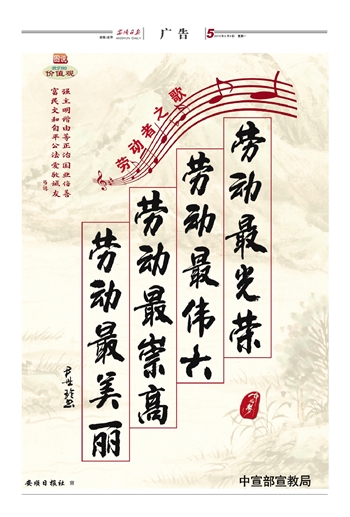 安顺日报
广告
5
图说
价值观
富强
民主
文明
和谐
自由
平等
公正
法治
爱国
敬业
诚信
友善
劳动者之歌
劳动最光荣
劳动最伟大
劳动最崇高
劳动最美丽
中国梦
安顺日报社 宣
中宣部宣教局